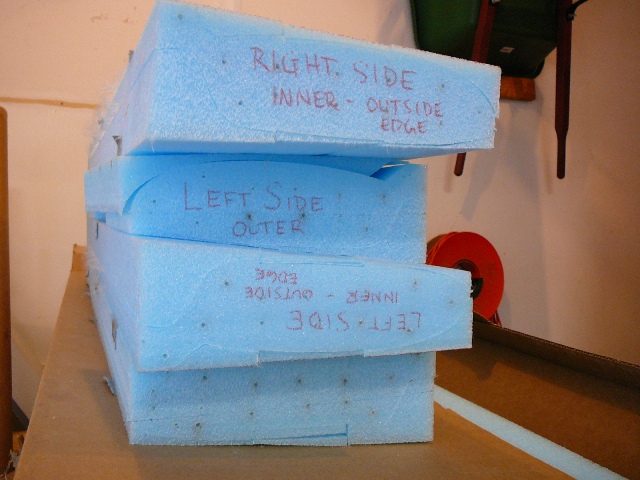 RIGHT SIDE
INNER - OUTSIDE
EDGE
LEFT SIDE
OUTER
LEFT SIDE
INNER - OUTSIDE
EDGE